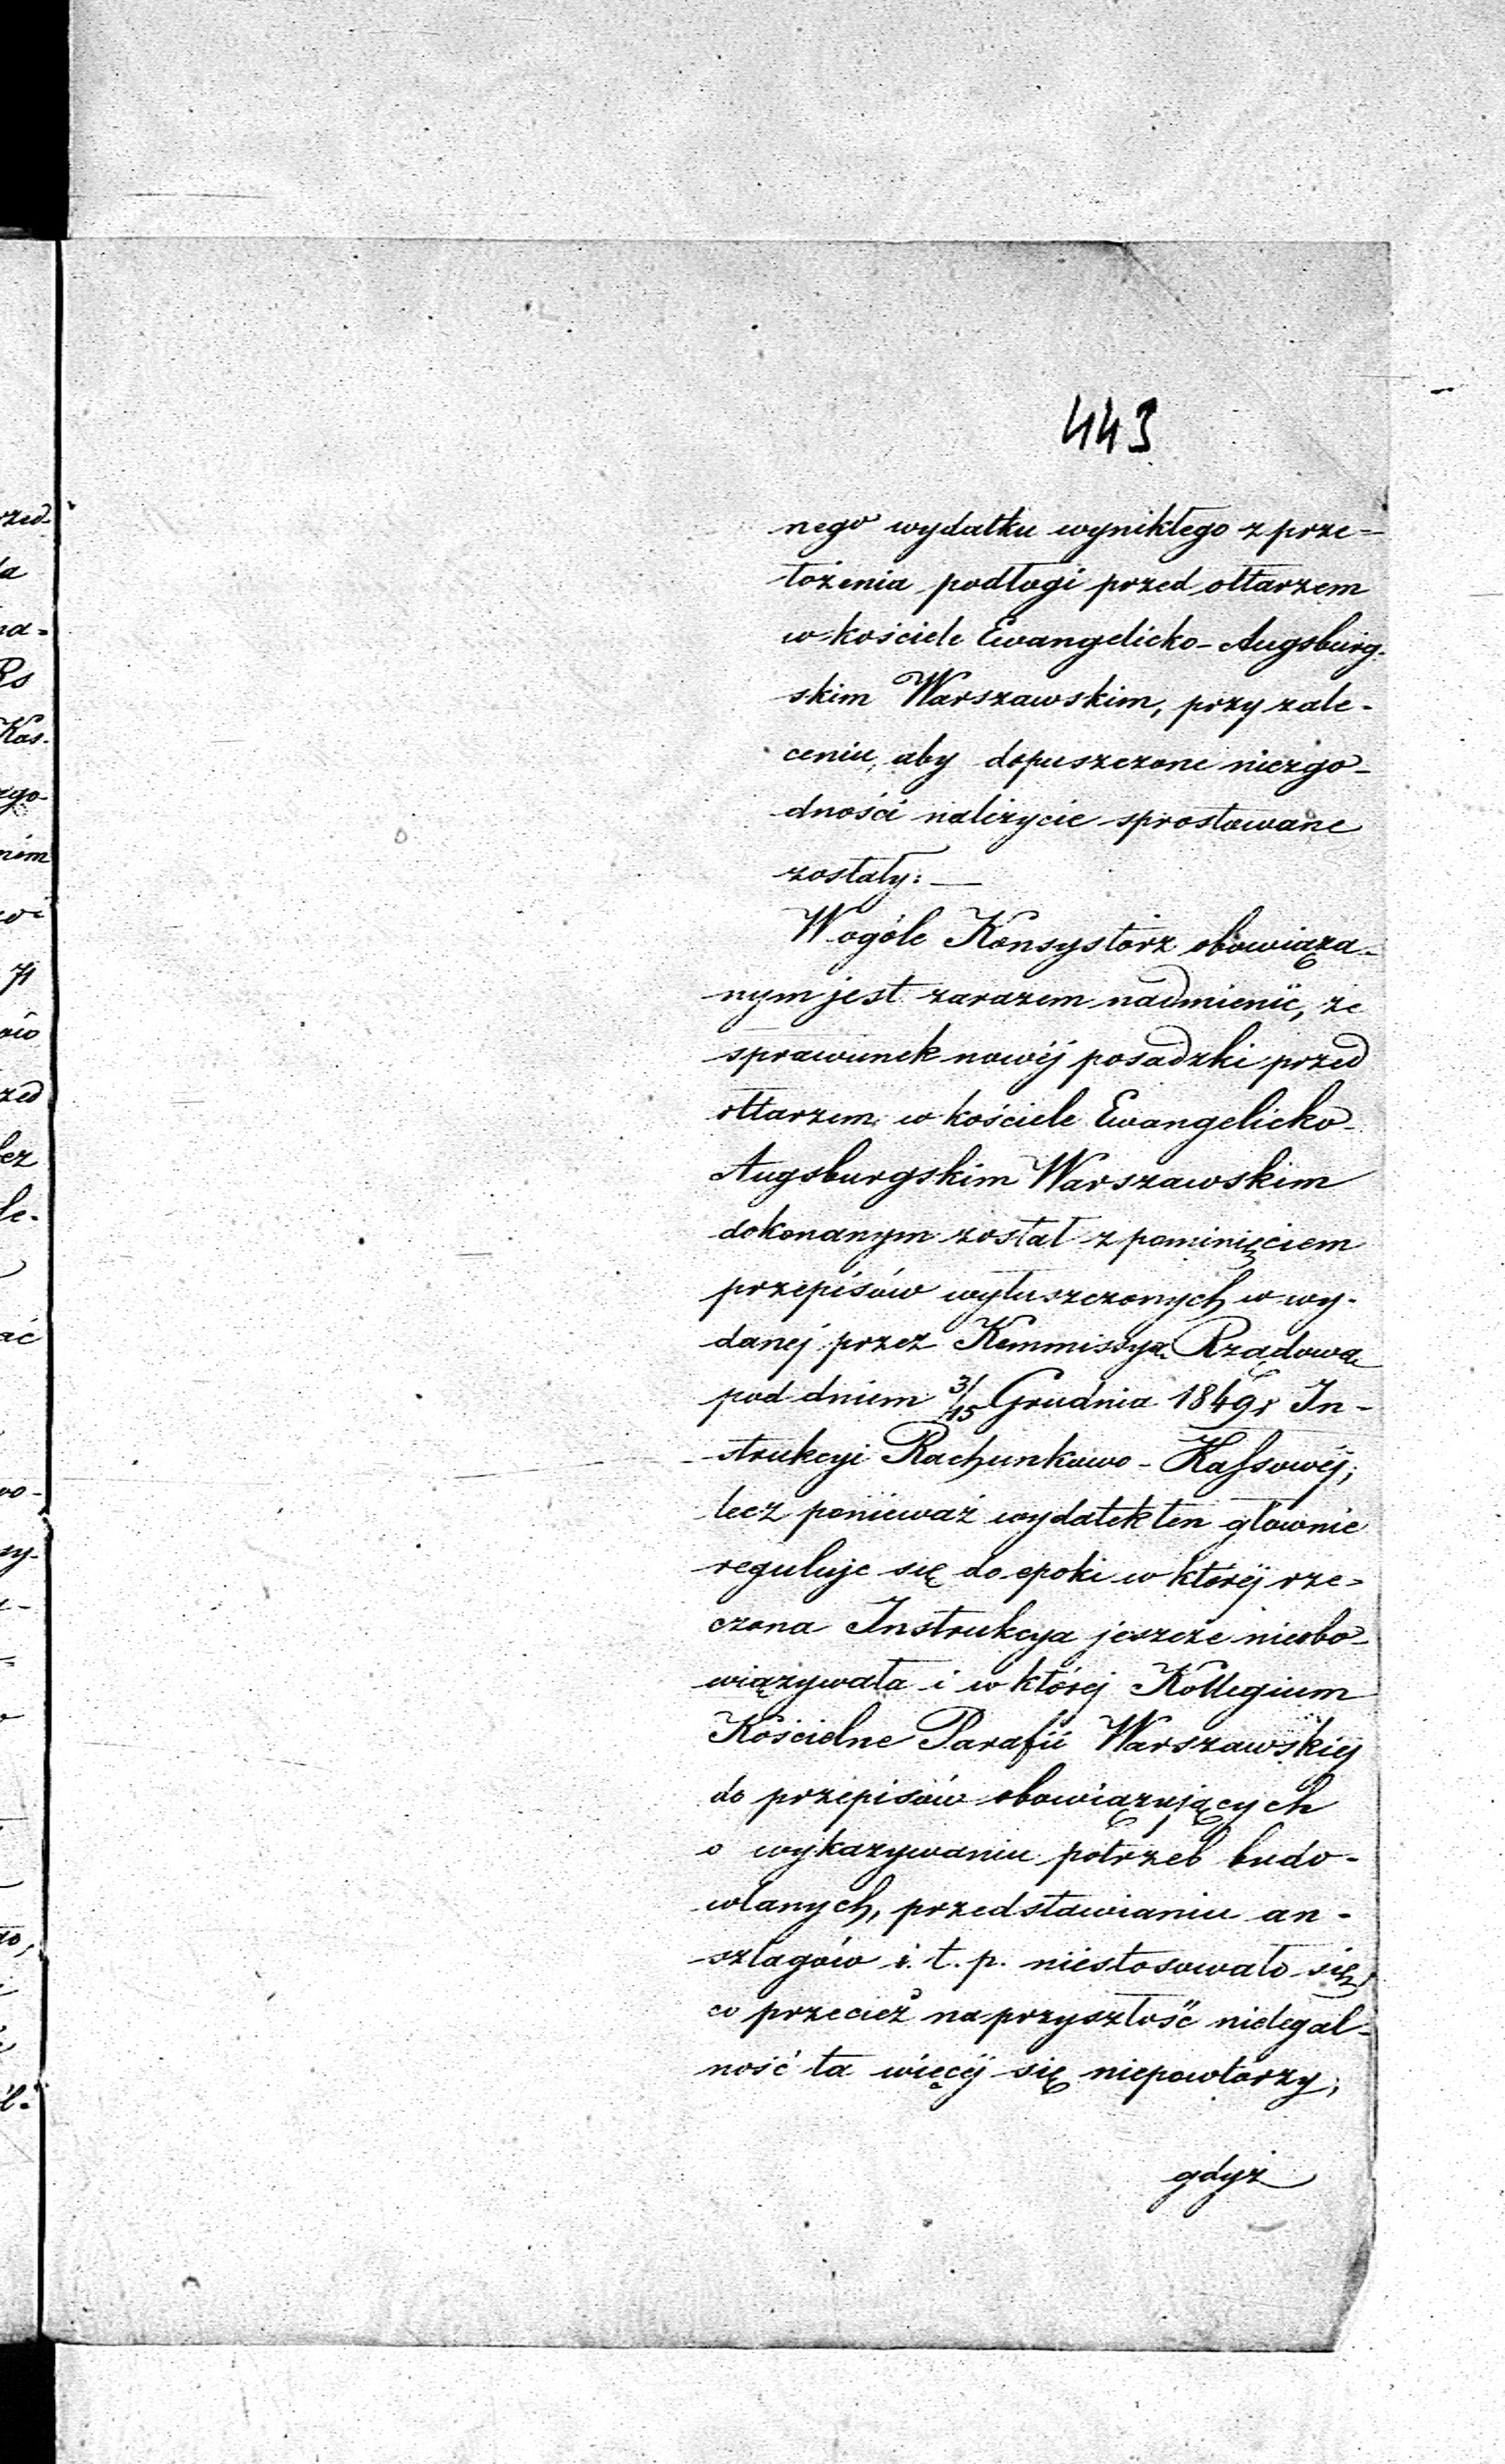 443
nego wydatku wynikłego z prze=
łożenia podłogi przed ołtarzem
w kościele Ewangelicko-Augsburg-
skim Warszawskim, przy zale-
ceniu, aby dopuszczone niezgo-
dności należycie sprostowane
zostały: —
W ogóle Konsystorz obowiąza-
nym jest zarazem nadmienić, że
sprawunek nowéj posadzki przed
ołtarzem w kościele Ewangelicko-
Augsburgskim Warszawskim
dokonanym został z pominięciem
przepisów wyłuszczonych w wy-
danej przez Kommissyą Rządową
pod dniem 3/15 Grudnia 1849 r In-
strukcyi Rachunkowo-Kassowéj;
lecz ponieważ wydatek ten głównie
reguluje się do epoki w któréj rze-
czona Instrukcya jeszcze nieobo-
wiązywała i w której Kollegium
Kościelne Parafii Warszawskiej
do przepisów obowiązujących
o wykazywaniu potrzeb budo-
wlanych, przedstawianiu an-
szlagów i. t. p. niestosowało się,
co przecież na przyszłość nielegal-
ność ta więcéj się niepowtórzy,
gdyż
rzed-
la
na-
Rs
Kas-
zgo-
nim
71
zed
lez
le-
ać
wo-